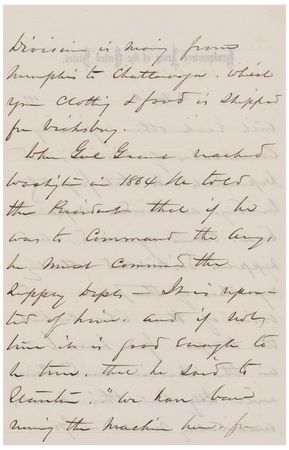 Division is moving from
Memphis to Chattanooga. whilst
your Clothing & food is shipped
for Vicksburg.
When Genl Grant reached
Washgtn in 1864 he told
the President that if he
was to Command the Army,
he must command the
Supply Depts — It is repor-
ted of him and if not
true it is good enough to
be true. that he said to
Stanton. "We have been
runing the machine here, for